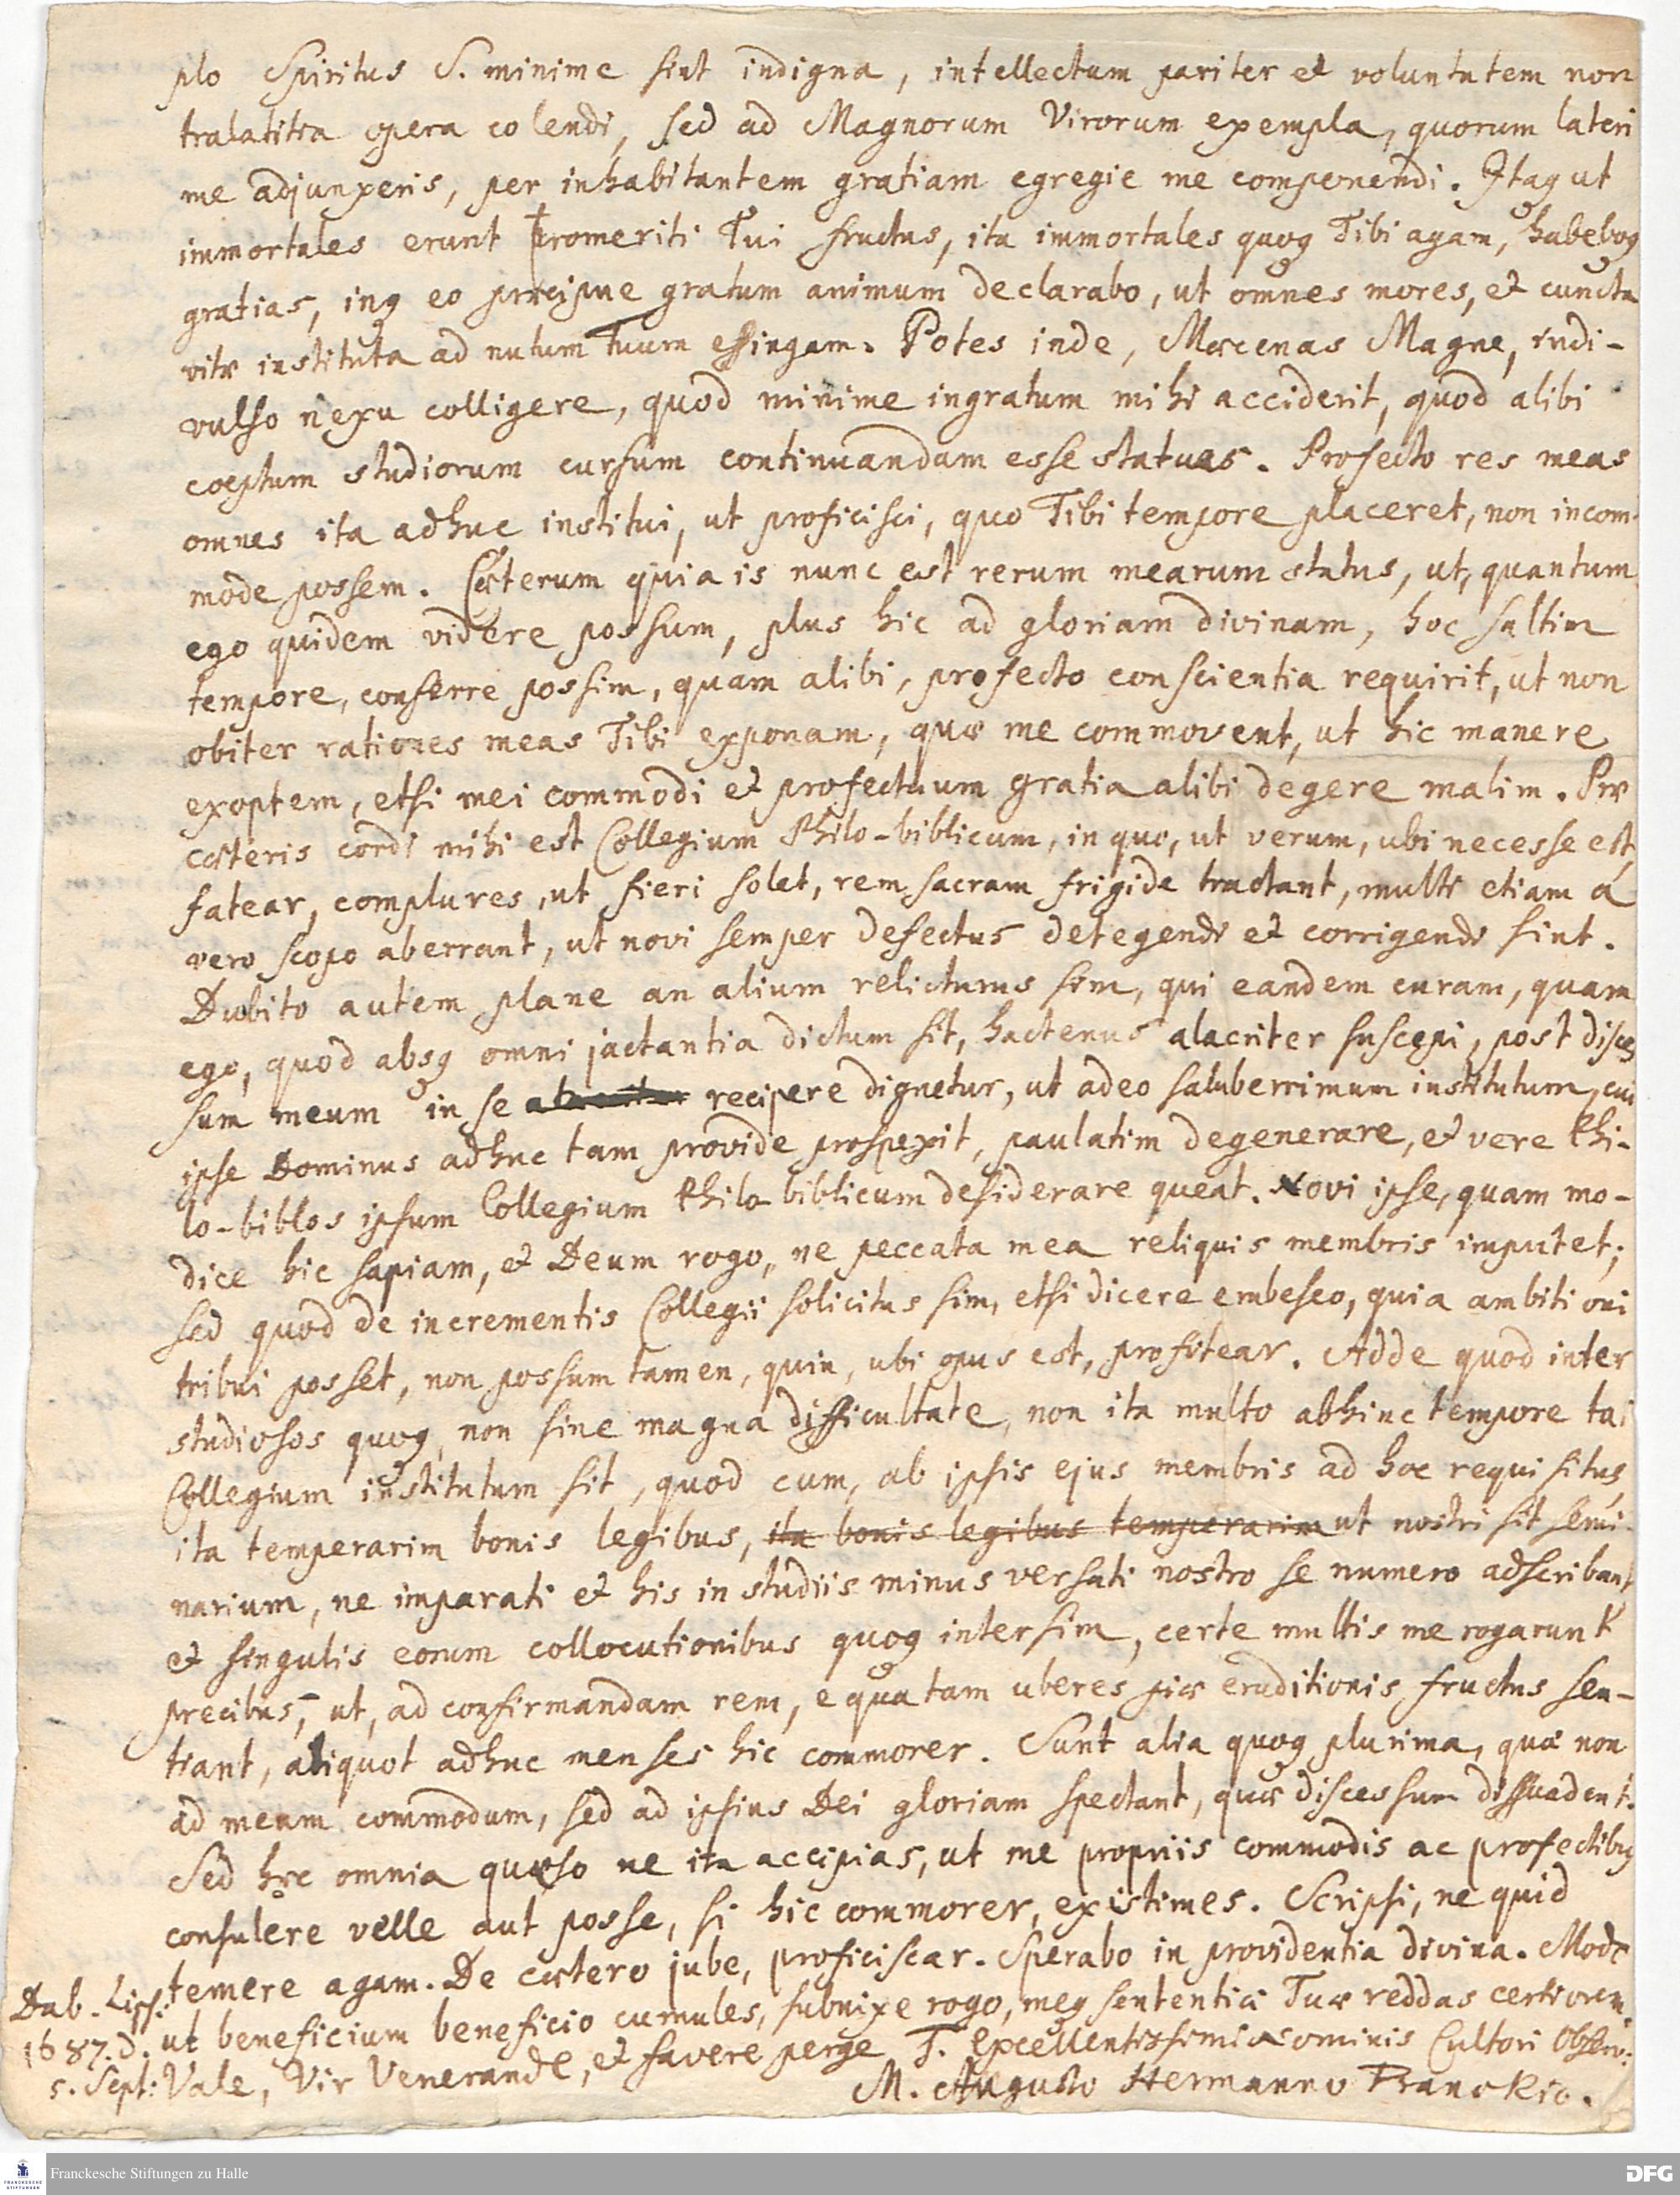 plo Spiritus S. minime sint indigna, intellectum pariter et voluntatem non
tralatitia opera colendi, sed ad Magnorum Virorum exempla, quorum lateri
me adjunxeris, per inhabitantem gratiam egregie me componendi. Itaq ut
immortales erunt promeriti Tui fructus, ita immortales quoq Tibi agam, habeboq
gratias, inq eo præcipue gratum animum declarabo, ut omnes mores, et cuncta
vitæ instituta ad nutum Tuum effingam. Potes inde, Mæcenas Magne, indi-
vulso nexu colligere, quod minime ingratum mihi acciderit, quod alibi
coeptum studiorum cursum continuandam esse statuas. Profecto res meas
omnes ita adhuc institui, ut proficisci, quo Tibi tempore placeret, non incom-
mode possem. Cæterum quia is nunc est rerum mearum status, ut, quantum
ego quidem videre possum, plus hic ad gloriam divinam, hoc saltim
tempore, conferre possim, quam alibi, profecto conscientia requirit, ut non
obiter rationes meas Tibi exponam, quæ me commovent, ut hic manere
exoptem, etsi mei commodi et profectuum gratia alibi degere malim. Præ
cæteris cordi mihi est Collegium Philo-biblicum, in quo, ut verum, ubi necesse est,
fatear, complures, ut fieri solet, rem sacram frigide tractant, multi etiam á
vero scopo aberrant, ut novi semper defectus detegendi et corrigendi sint.
Dubito autem plane an alium relicturus sim, qui eandem curam, quam
ego, quod absq omni jactantia dictum sit, hactenus alacriter suscepi, post disces
sum meum in se alacriter recipere dignetur, ut adeo saluberrimum institutum, cui
ipse Dominus adhuc tam provide prospexit, paulatim degenerare, et vere Phi-
lo-biblos ipsum Collegium Philo biblicum desiderare queat. Novi ipse, quam mo-
dice hic sapiam, et Deum rogo, ne peccata mea reliquis membris imputet;
sed quod de incrementis Collegii solicitus sim, etsi dicere erubesco, quia ambitioni
tribui posset, non possum tamen, quin, ubi opus est, profitear. Adde quod inter
studiosos quoq, non sine magna difficultate, non ita multo abhinc tempore tal
Collegium institutum sit, quod cum, ab ipsis ejus membris ad hoc requisitus,
ita temperarim bonis legibus, ita bonis legibus temperarim ut nostri sit semi-
narium, ne imparati et his in studiis minus versati nostro se numero adscribant
et singulis eorum collocutionibus quoq intersim, certe multis me rogarunt
precibus, ut, ad confirmandam rem, e qua tam uberes piæ eruditionis fructus sen-
tiant, aliquot adhuc menses hic commorer. Sunt alia quoq plurima, quæ non
ad meum commodum, sed ad ipsius Dei gloriam spectant, quæ discessum dissuadent.
Sed hæc omnia quæso ne ita accipias, ut me propriis commodis ac profectibus
consulere velle aut posse, si hic commorer, existimes. Scripsi, ne quid
temere agam. De cætero jube, proficiscar. Sperabo in providentia divina. Modo
ut beneficium beneficio cumules, subnixe rogo, meq sententiæ Tuæ reddas certiorem.
Vale, Vir Venerande, et favere perge T. Excellentissimi Nominis Cultori Observ:
M. Augusto Hermanno Franckio.
Dab. Lips:
1687. d.
5. Sept:
Franckesche Stiftungen zu Halle
FRANCKESCHE STIFTUNGEN
DFG